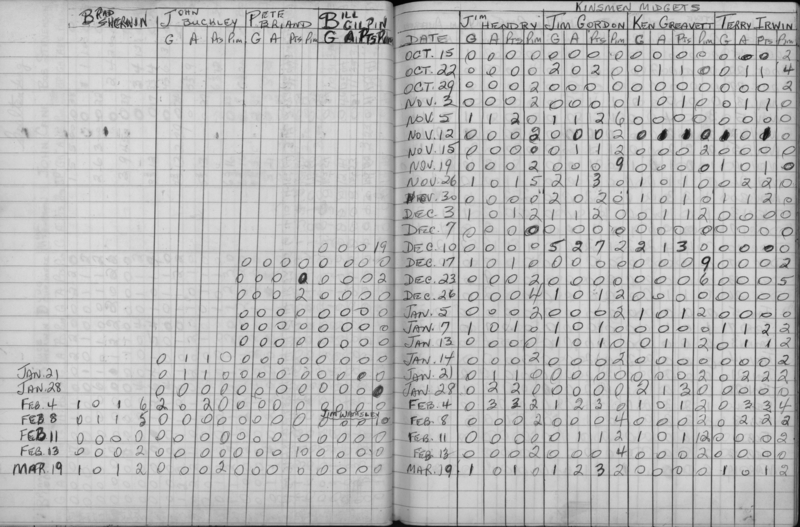 BRAD SHERWIN JOHN BUCKLEY PETE BRIAND BILL GILPIN
G A PTS PIM G A PTS PIM G A PTS PIM
0 0 0 19
0 0 0 0 0 0 0 0
0 0 0 0 0 0 2
0 0 0 2 0 0 0 0
0 0 0 0 0 0 0 0
0 0 0 0 0 0 0 0
0 0 0 0 0 0 0 0
0 1 1 0 0 0 0 0 0 0 0 0
JAN. 21 0 1 1 0 0 0 0 0 0 0 0
JAN. 28 0 0 0 0 0 0 0 0 0 0 0
FEB. 4 1 0 1 6 2 0 2 0 0 0 0 0
FEB 8 0 1 1 0 0 0 0 0 0 0 0 JIM
FEB 11 0 0 0 0 0 0 0 0 0 0 0 0 0 0 0 0
FEB. 13 0 0 0 2 0 0 0 0 0 0 0 10 0 0 0 0
MAR. 19 1 0 1 2 0 0 0 2 0 0 0 0 0 0 0 0
KINSMEN MIDGETS
JIM HENDRY JIM GORDON KEN GREAVETT TERRY IRWIN
DATE G A PTS PIM G A PTS PIM G A PTS PIM G A PTS PIM
OCT. 15 0 0 0 0 0 0 0 0 0 0 0 0 0 0 0 2
OCT. 22 0 0 0 0 2 0 2 0 0 1 1 0 0 1 1 4
OCT. 29 0 0 0 2 0 0 0 0 0 0 0 0 0 0 0 2
NOV. 3 0 0 0 2 0 0 0 0 1 0 1 0 0 1 1 0
NOV. 5 1 1 2 0 1 1 2 6 0 0 0 0 0 0 0 0
NOV. 12 0 0 0 2 0 0 0 2 0
NOV. 15 0 0 0 0 0 1 1 2 0 0 0 2 0 0 0 0
NOV. 19 0 0 0 2 0 0 0 9 0 0 0 0 1 0 1 0
NOV. 26 1 0 1 5 2 1 3 0 1 0 1 0 0 2 2 0
NOV. 30 0 0 0 0 2 0 2 0 1 0 1 0 1 1 2 0
DEC. 3 1 0 1 2 1 1 2 0 0 1 1 2 0 0 0 0
DEC. 7 0 0 0 0 0 0 0 0 0 0 0 0 0 0 0 0
DEC. 10 0 0 0 0 5 2 7 2 2 1 3 0 0 0 0 0
DEC. 17 1 0 1 0 0 0 0 0 0 0 0 9 0 0 0 2
DEC. 23 0 0 0 2 0 0 0 0 0 0 0 6 0 0 0 5
DEC. 26 0 0 0 4 1 0 1 2 0 0 0 0 0 0 0 0
JAN. 5 0 0 0 2 0 0 0 2 1 0 1 2 0 0 0 0
JAN. 7 1 0 1 0 1 0 1 0 0 0 0 0 1 1 2 2
JAN 13 0 0 0 0 1 0 1 0 0 1 1 2 0 1 1 2
JAN. 14 0 0 0 2 0 0 0 2 0 0 0 0 0 0 0 2
JAN. 21 0 1 1 0 0 0 0 0 0 0 0 0 0 2 2 2
JAN 28 0 2 2 0 0 0 0 0 2 1 3 0 0 0 0 0
FEB. 4 0 3 3 2 1 2 3 0 1 0 1 2 0 3 3 4
FEB. 8 0 0 0 2 0 0 0 4 0 0 0 2 0 2 2 2
FEB. 11 0 0 0 0 0 1 1 2 1 0 1 12 0 0 0 2
FEB. 13 0 0 0 2 0 0 0 4 0 0 0 2 0 0 0 0
MAR. 19 1 0 1 0 1 2 3 2 0 0 0 0 1 0 1 2